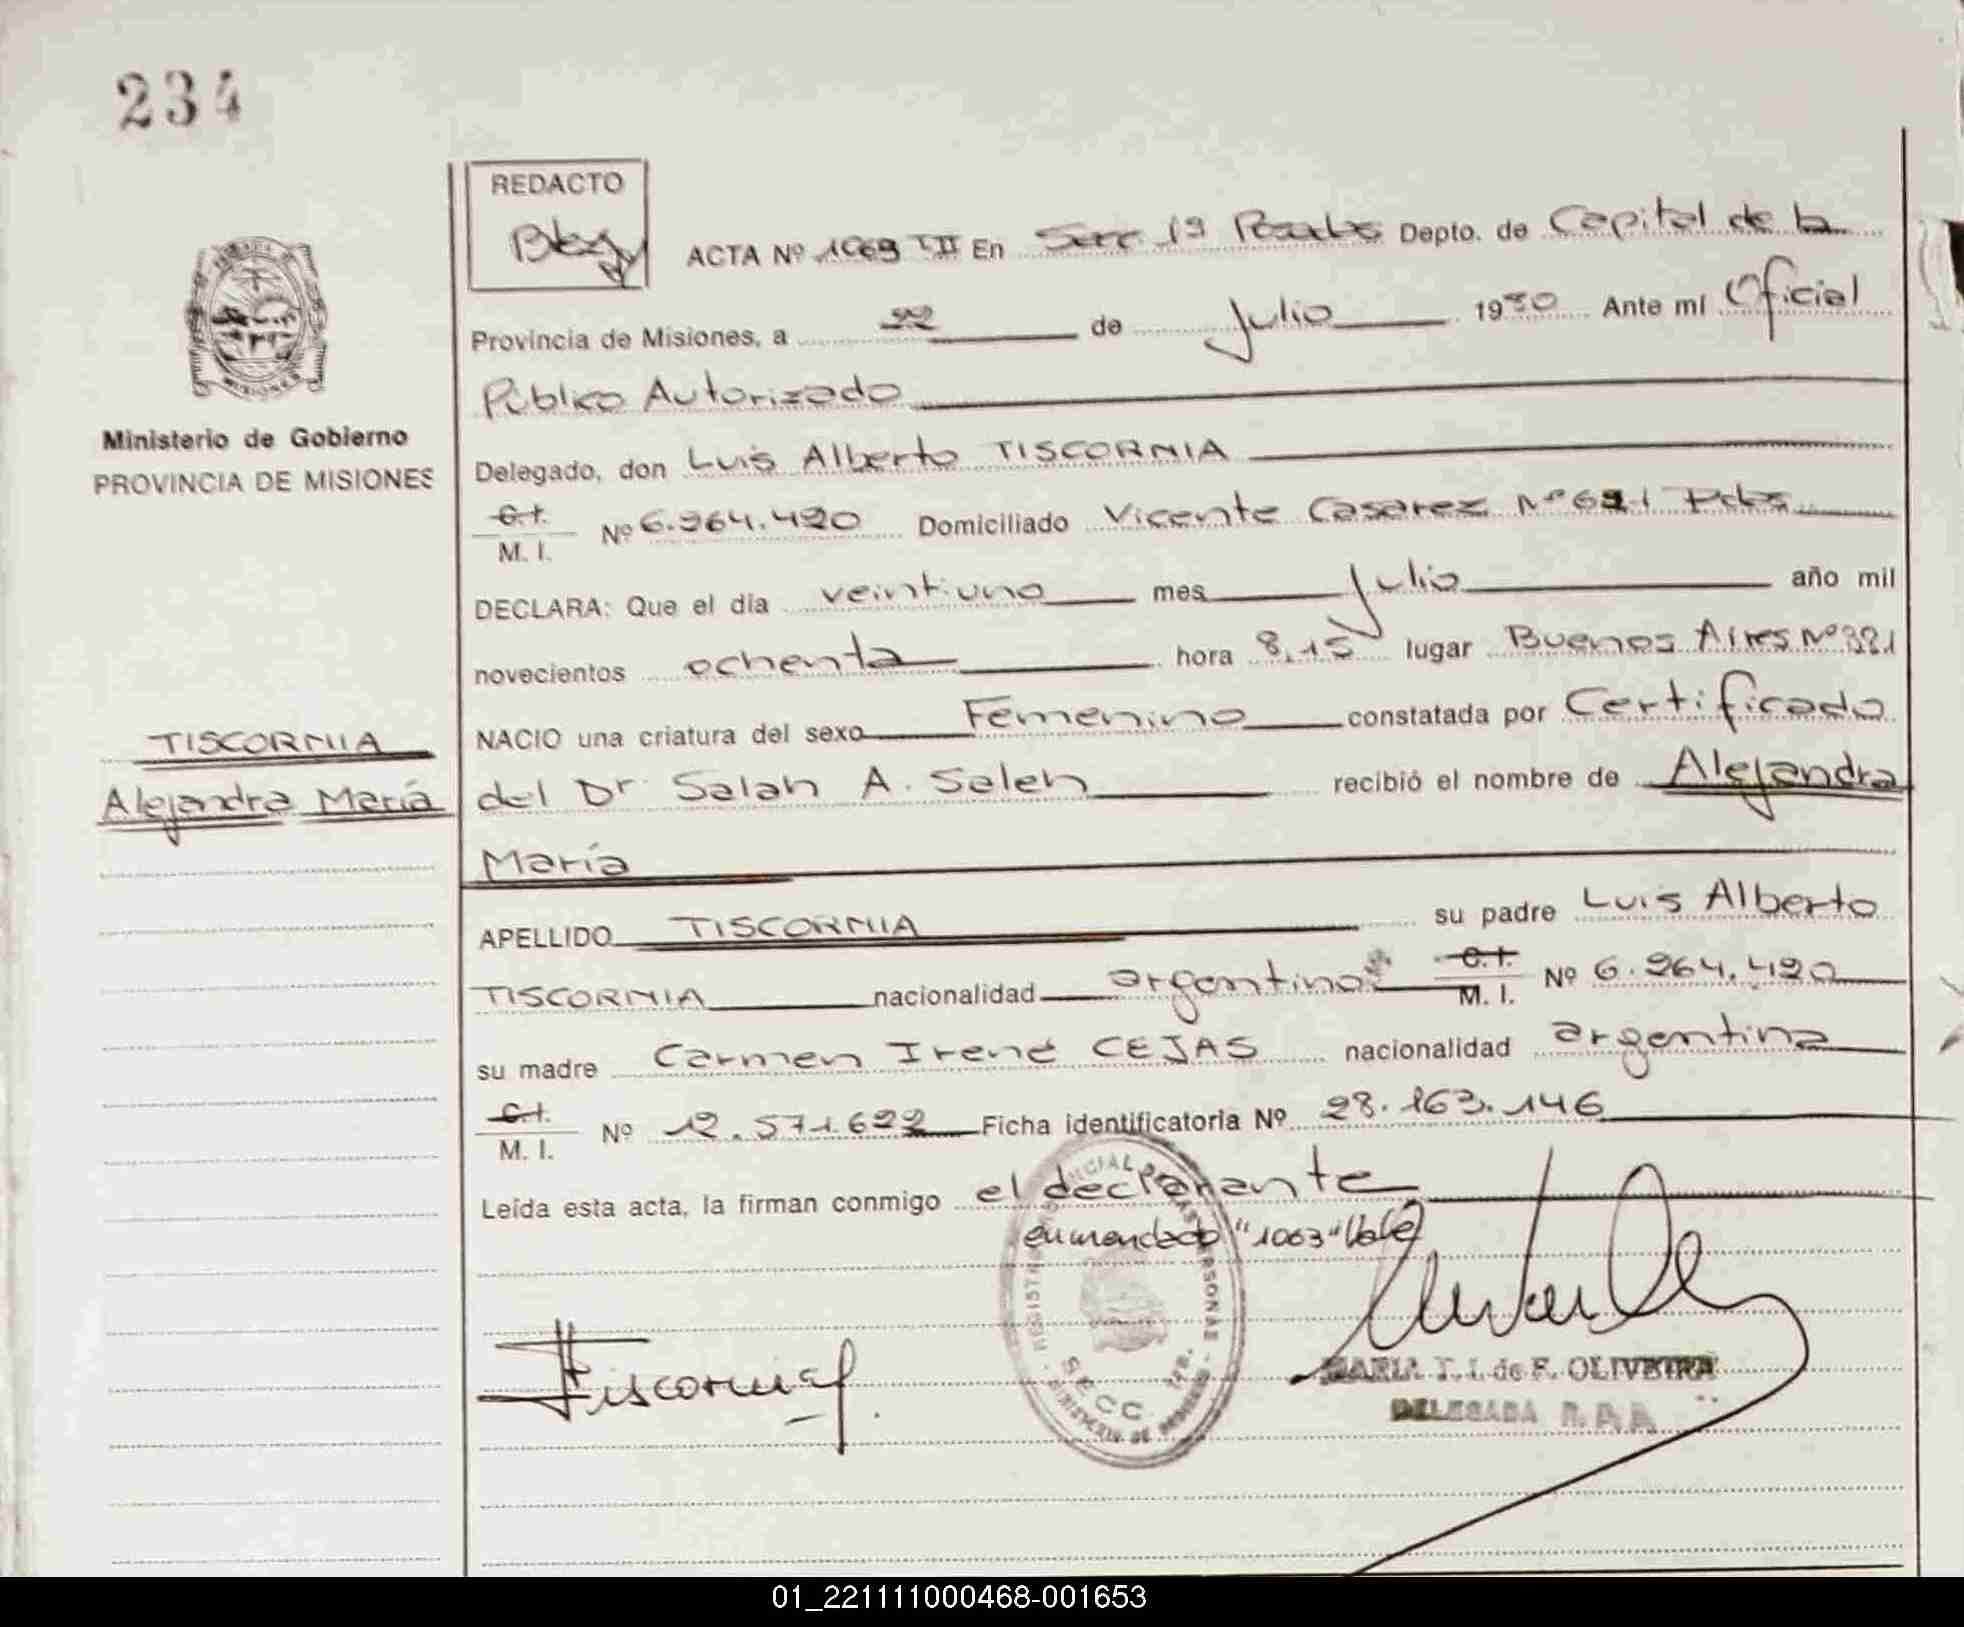 234
REDACTO
ACTA Nº 1063 TII En Secc 1ª Posadas Depto. de Capital de la
Provincia de Misiones, a 22 de Julio 1980 Ante mí Oficial
Público Autorizado
Ministerio de Gobierno
PROVINCIA DE MISIONES
Delegado, don Luis Alberto TISCORNIA
C.I.
M. I. Nº 6.264.420 Domiciliado Vicente Casarez Nº 621 Pdas
DECLARA: Que el día veintiuno mes Julio año mil
novecientos ochenta hora 8,15 lugar Buenos Aires Nº 321
NACIO una criatura del sexo Femenino constatada por Certificado
TISCORNIA
Alejandra María
del Dr Salah A. Saleh recibió el nombre de Alejandra
María
APELLIDO TISCORNIA su padre Luis Alberto
TISCORNIA nacionalidad argentina C.I.
M. I. Nº 6.264.420
su madre Carmen Irene CEJAS nacionalidad argentina
C.I.
M. I. Nº 12.571.622 Ficha identificatoria Nº 28.163.146
Leída esta acta, la firman conmigo el declarante
enmendado "1063" Vale
Tiscornia
MARIA T. I. de F. OLIVEIRA
DELEGADA
01_221111000468-001653